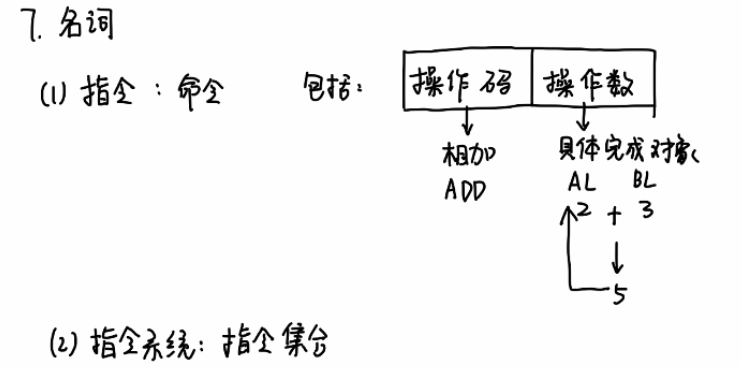 7. 名词
(1) 指令：命令 包括： 操作码 操作数
相加 具体完成对象
ADD AL BL
2 + 3
5
(2) 指令系统：指令集合